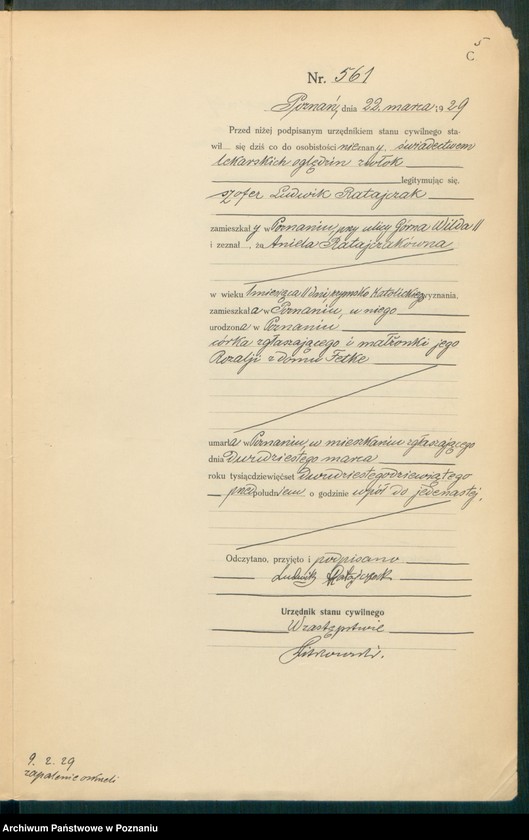 5
C
Nr. 561
Poznań, dnia 22. marca 1929
Przed niżej podpisanym urzędnikiem stanu cywilnego sta-
wił... się dziś co do osobistości nieznany, świadectwem
lekarskich oględzin zwłok
legitymując się,
szofer Ludwik Ratajczak
zamieszkały w Poznaniu, przy ulicy Górna Wilda 11
i zeznał..., że Aniela Ratajczakówna
w wieku 1 miesiąca 11 dni, rzymsko katolickiego wyznania,
zamieszkała w Poznaniu, u niego
urodzona w Poznaniu
córka zgłaszającego i małżonki jego
Rozalji z domu Fetke
umarła w Poznaniu, w mieszkaniu zgłaszającego
dnia dwudziestego marca
roku tysiącdziewięćset dwudziestegodziewiątego
przed południem o godzinie wpół do jedenastej.
Odczytano, przyjęto i podpisano
Ludwik Ratajczak
Urzędnik stanu cywilnego
W zastępstwie
9. 2. 29
zapalenie oskrzeli
Archiwum Państwowe w Poznaniu